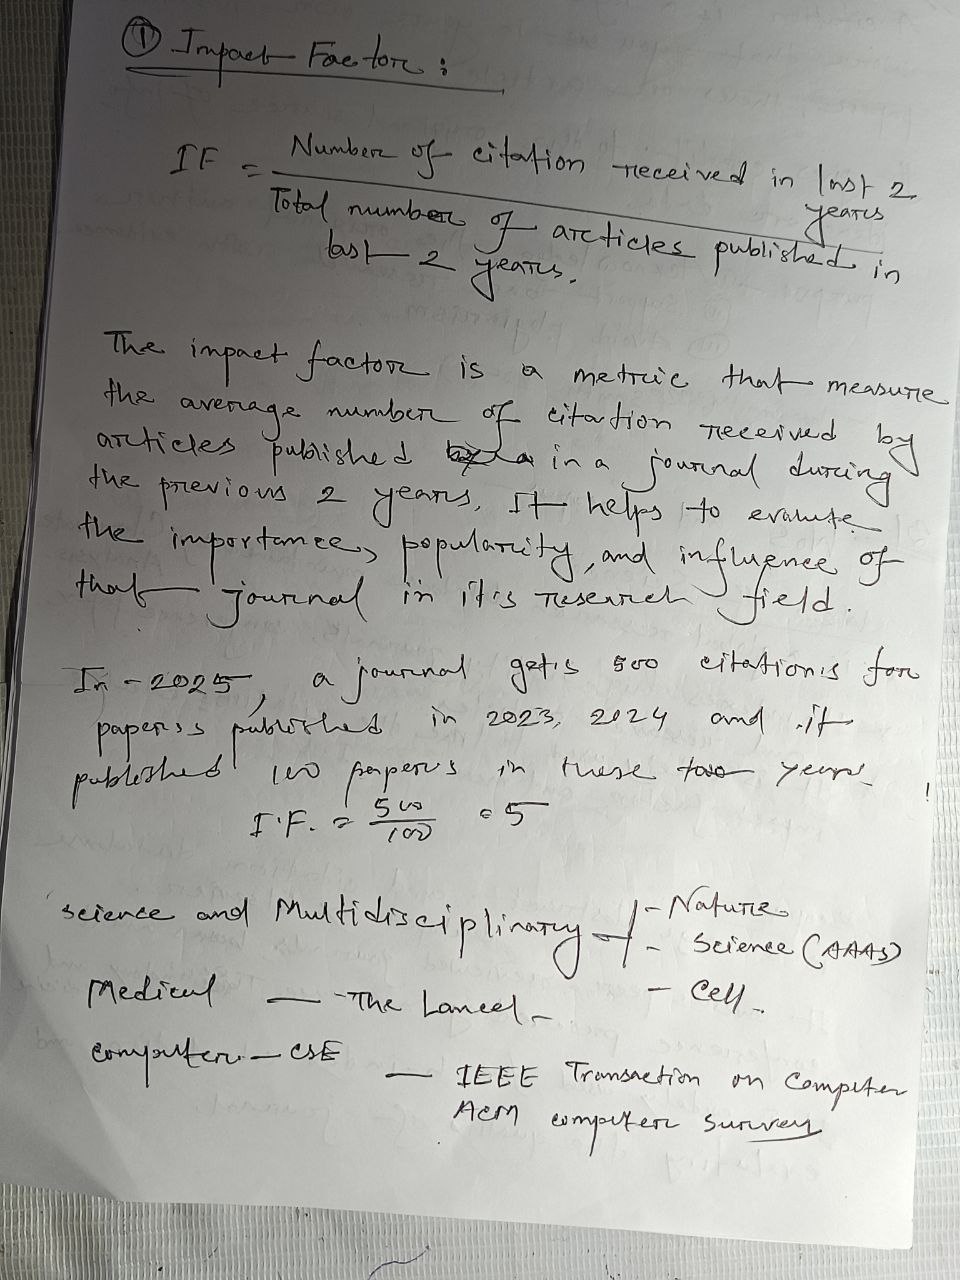 ① Impact Factor :
IF = Number of citation received in last 2 years
Total number of articles published in
last 2 years.
The impact factor is a metric that measure
the average number of citation received by
articles published in a journal during
the previous 2 years. It helps to evalute
the importance, popularity, and influence of
that journal in it's research field.
In - 2025, a journal gets 500 citations for
papers published in 2023, 2024 and it
published 100 papers in these two years
I.F. = 500/100 = 5
science and Multidisciplinary - Nature
- Science (AAAS)
- Cell.
Medical — The Lancel
computer — CSE
— IEEE Transaction on Computer
ACM computer survey